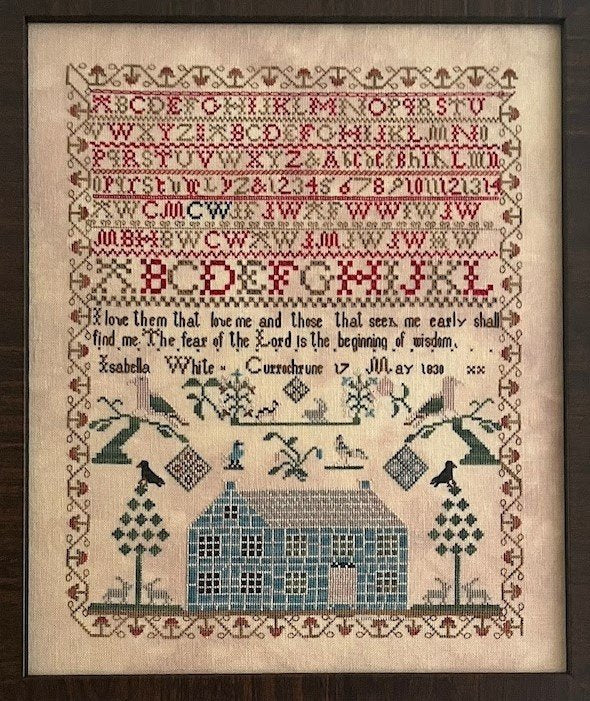 ABCDEFGHIJKLMNOPQRSTU
VWXYZ ABCDEFGHIJKLMNO
PQRSTUVWXYZ&AbcdefghIKLMn
opqrstuwxyz&1234567891011121314
CM CW IW WW IW
MB HB WCW IM IW
ABCDEFGHIJKL
I love them that love me and those that seek me early shall
find me. The fear of the Lord is the beginning of wisdom.
Isabella White Currochrune 17 May 1830 xx